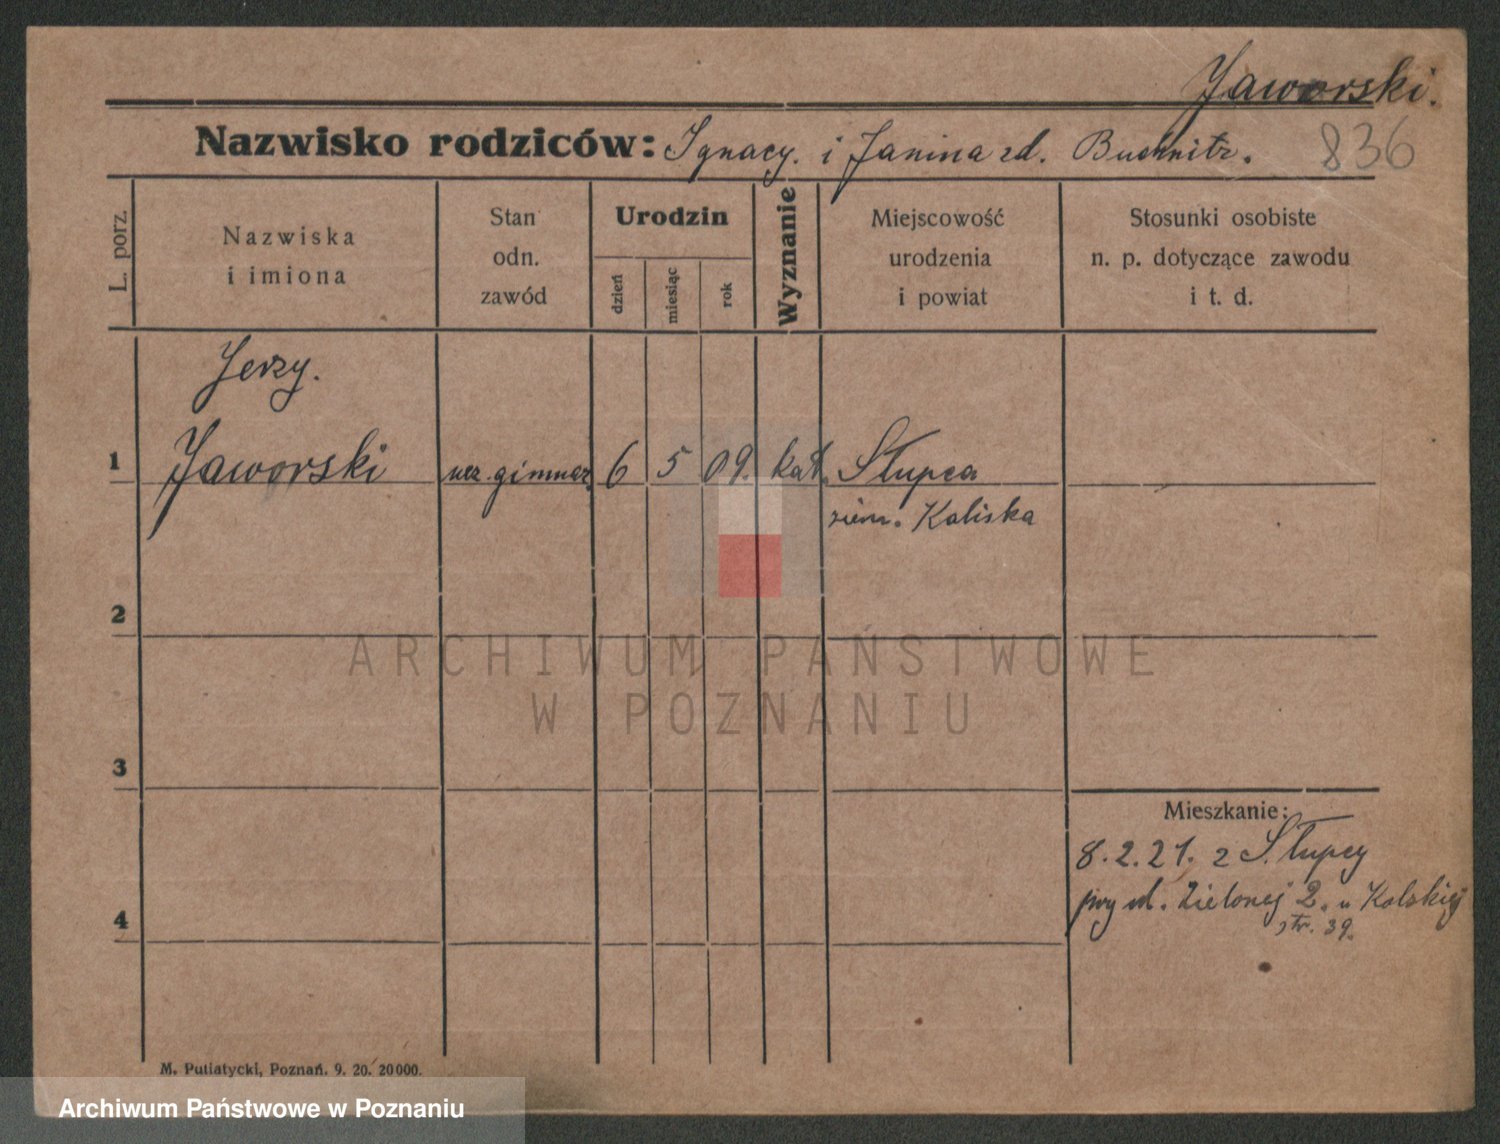 Jaworski.
Nazwisko rodziców: Ignacy. i Janina zd. Buchnitz.
836
L. porz.
Nazwiska
i imiona
Stan
odn.
zawód
Urodzin
dzień
miesiąc
rok
Wyznanie
Miejscowość
urodzenia
i powiat
Stosunki osobiste
n. p. dotyczące zawodu
i t. d.
Jerzy.
1 Jaworski ucz. gimnaz. 6 5 09. kat. Słupca
ziem. Kaliska
2
3
4
Mieszkanie:
8.2.21. z Słupcy
przy ul. Zielonej 2. u Kolskiej
str. 39.
M. Putiatycki, Poznań. 9. 20. 20000.
ARCHIWUM PAŃSTWOWE
W POZNANIU
Archiwum Państwowe w Poznaniu